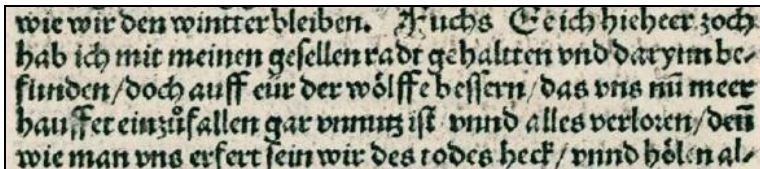 wie wir den wintter bleiben. Fuchs Ee ich hieheer zoch
hab ich mit meinen gesellen radt gehaltten vnd darynn be-
funden/doch auff eür der wölffe bessern/das vns nu̅ meer
hauffet einzůfallen gar vnnutz ist vnnd alles verloren/den̅
wie man vns erfert sein wir des todes heck/vnnd hölen al-